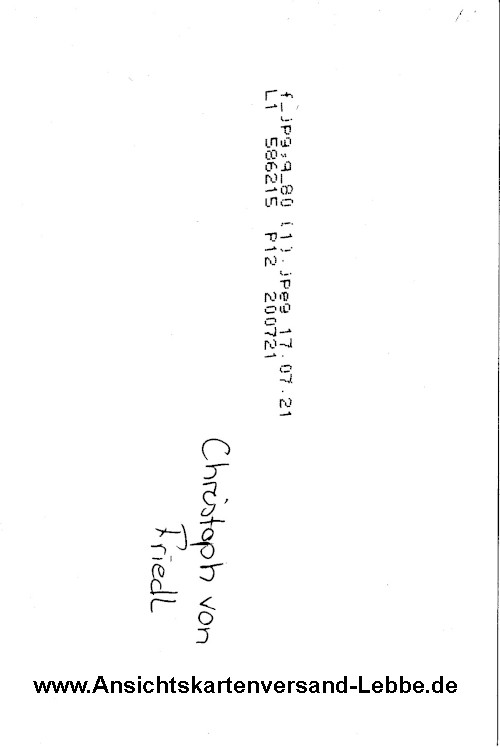 f_jpg,q_80 (1).jpeg 17.07.21
L1 586215 P12 200721
Christoph von
Friedl
www.Ansichtskartenversand-Lebbe.de